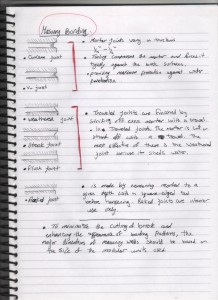 Masonry Bonding
• Mortar joints vary in thickness
1/4" – 1/2"
• Concave joint
• Tooling compresses the mortar and forces it
tightly against the brick surfaces.
• providing maximum protection against water
penetration
• V joint
• weathered joint
• Troweled joints are formed by
striking off excess mortar with a trowel.
• In a Troweled joints. The mortar is cut or
• struck joint
struck off with a trowel. The
most effective of these is the weathered
joint because it sheds water.
• Flush joint
• Raked joint
• is made by removing mortar to a
given depth with a square-edged tool
before hardening. Raked joints are interior
use only.
• To minimize the cutting of brick and
enhancing the appearance of bonding patterns, the
major dimension of masonry walls should be based on
the size of the modular units used